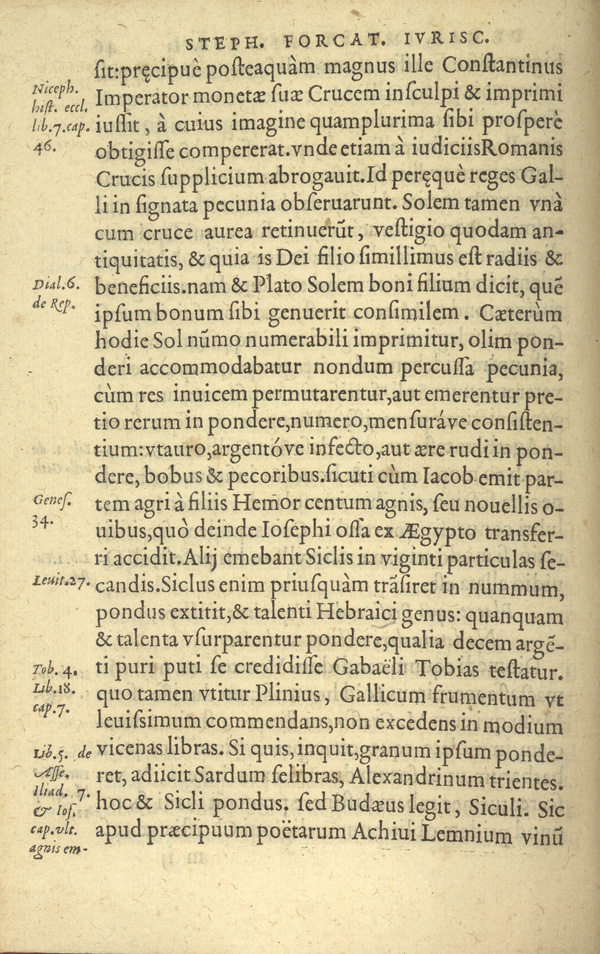 STEPH. FORCAT. IVRISC.
sit:pręcipuè posteaquàm magnus ille Constantinus
Niceph.
hist. eccl.
lib.7.cap.
46.
Imperator monetæ suæ Crucem insculpi & imprimi
iussit, à cuius imagine quamplurima sibi prosperè
obtigisse compererat.vnde etiam à iudiciisRomanis
Crucis supplicium abrogauit.Id peręquè reges Gal-
li in signata pecunia obseruarunt. Solem tamen vnà
cum cruce aurea retinuerũt, vestigio quodam an-
tiquitatis, & quia is Dei filio simillimus est radiis &
Dial.6.
de Rep.
beneficiis.nam & Plato Solem boni filium dicit, quẽ
ipsum bonum sibi genuerit consimilem. Cæterùm
hodie Sol nũmo numerabili imprimitur, olim pon-
deri accommodabatur nondum percussa pecunia,
cùm res inuicem permutarentur,aut emerentur pre-
tio rerum in pondere,numero,mensuráve consisten-
tium:vtauro,argentóve infecto,aut ære rudi in pon-
dere, bobus & pecoribus.sicuti cùm Iacob emit par-
Genes.
34.
tem agri à filiis Hemor centum agnis, seu nouellis o-
uibus,quò deinde Iosephi ossa ex Ægypto transfer-
ri accidit.Alij emebant Siclis in viginti particulas se-
Leuit.27.
candis.Siclus enim priusquàm trãsiret in nummum,
pondus extitit,& talenti Hebraici genus: quanquam
& talenta vsurparentur pondere,qualia decem argẽ-
Tob. 4.
ti puri puti se credidisse Gabaëli Tobias testatur.
Lib.18.
cap.7.
quo tamen vtitur Plinius, Gallicum frumentum vt
leuissimum commendans,non excedens in modium
Lib.5. de
Asse.
vicenas libras. Si quis,inquit,granum ipsum ponde-
ret, adiicit Sardum selibras, Alexandrinum trientes.
Iliad. 7.
& Ios.
cap.vlt.
agnis em-
hoc & Sicli pondus. sed Budæus legit, Siculi. Sic
apud præcipuum poëtarum Achiui Lemnium vinũ